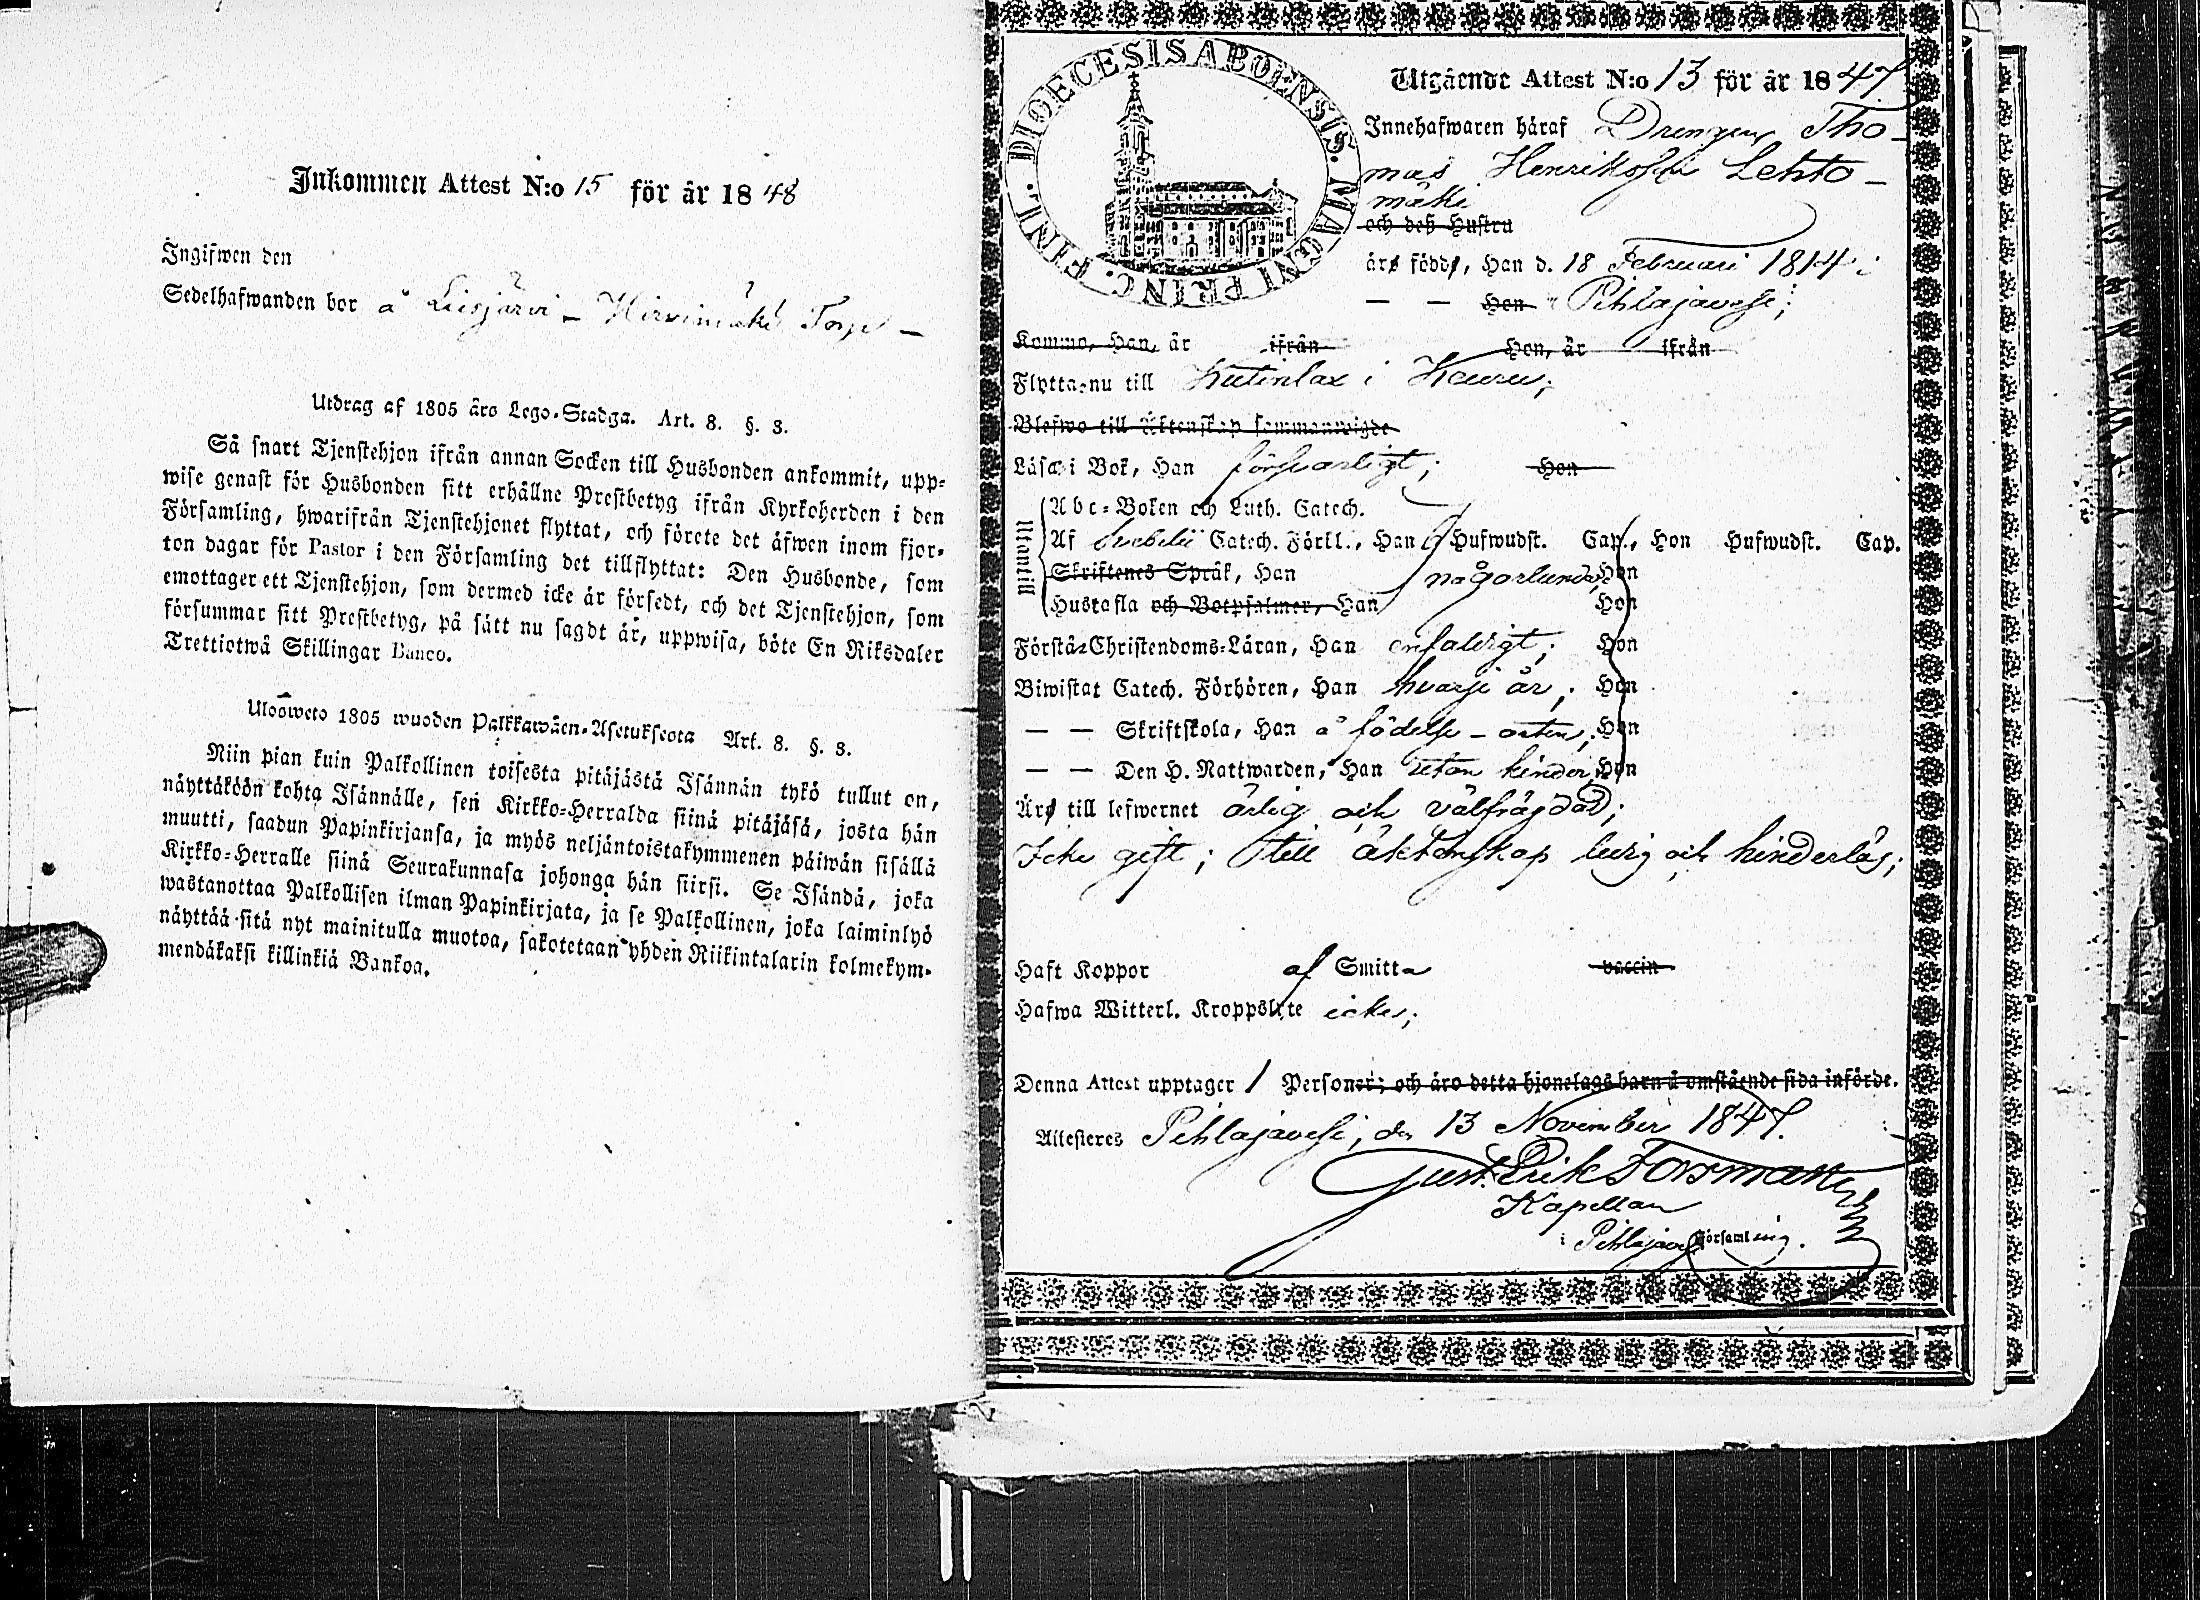 Inkommen Attest N:o 15 för år 1848
Ingifwen den
Sedelhafwanden bor å Liesjärvi - Hirvimäki Torp -
Utdrag af 1805 års Lego-Stadga. Art. 8. §. 3.
Så snart Tjenstehjon ifrån annan Socken till Husbonden ankommit, upp-
wise genast för Husbonden sitt erhållne Prestbetyg ifrån Kyrkoherden i den
Församling, hwarifrån Tjenstehjonet flyttat, och förete det äfwen inom fjor-
ton dagar för Pastor i den Församling det tillflyttat: Den Husbonde, som
emottager ett Tjenstehjon, som dermed icke är försedt, och det Tjenstehjon, som
försummar sitt Prestbetyg, på sätt nu sagdt är, uppwisa, böte En Riksdaler
Trettiotwå Skillingar Banco.
Ulosweto 1805 wuoden Palkkawäen-Asetuksesta Art. 8. §. 3.
Niin pian kuin Palkollinen toisesta pitäjästä Isännän tykö tullut on,
näyttäköön kohta Isännälle, sen Kirkko-Herralda siinä pitäjäsä, josta hän
muutti, saadun Papinkirjansa, ja myös neljäntoistakymmenen päiwän sisällä
Kirkko-Herralle siinä Seurakunnasa johonga hän siirsi. Se Isändä, joka
wastanottaa Palkollisen ilman Papinkirjata, ja se Palkollinen, joka laiminlyö
näyttää sitä nyt mainitulla muotoa, sakotetaan yhden Riikintalarin kolmekym-
mendäkaksi killinkiä Bankoa.
DIOECESIS ABOENSIS. MAGNI PRINC. FINL.
Utgående Attest N:o 13 för år 1847
Innehafwaren häraf Drengen Tho-
mas Henriksson Lehto-
mäki
och deß Hustru
äro född, Han d. 18 Februari 1814 i
— — Hon Pihlajavesi;
Kommo, Han, är ifrån Hon, är ifrån
Flytta nu till Kutenlax i Keuru;
Blefwo till Äktenskap sammanwigde
Läsa i Bok, Han försvarligt; Hon
Utantill
Abc-Boken och Luth. Catech.
Af Svebelii Catech. Förkl., Han Hufwudst. Cap., Hon Hufwudst. Cap.
Skriftenes Språk, Han någorlunda; Hon
Hustafla och Botpsalmer, Han Hon
Förstå Christendoms-Läran, Han enfaldigt; Hon
Biwistat Catech. Förhören, Han hvarje år; Hon
— — Skriftskola, Han å födelse-orten; Hon
— — Den H. Nattwarden, Han utan hinder; Hon
Äro till lefwernet ärlig och välfrägdad;
Icke gift; till äktenskap ledig och hinderlös;
Haft Koppor af Smitta vaccin
Hafwa Witterl. Kroppslyte icke;
Denna Attest upptager 1 Personer; och äro detta hjonelags barn å omstående sida införde.
Attesteres Pihlajavesi, den 13 November 1847.
Gust. Erik Forsman
Kapellan
i Pihlajavesi Församling.